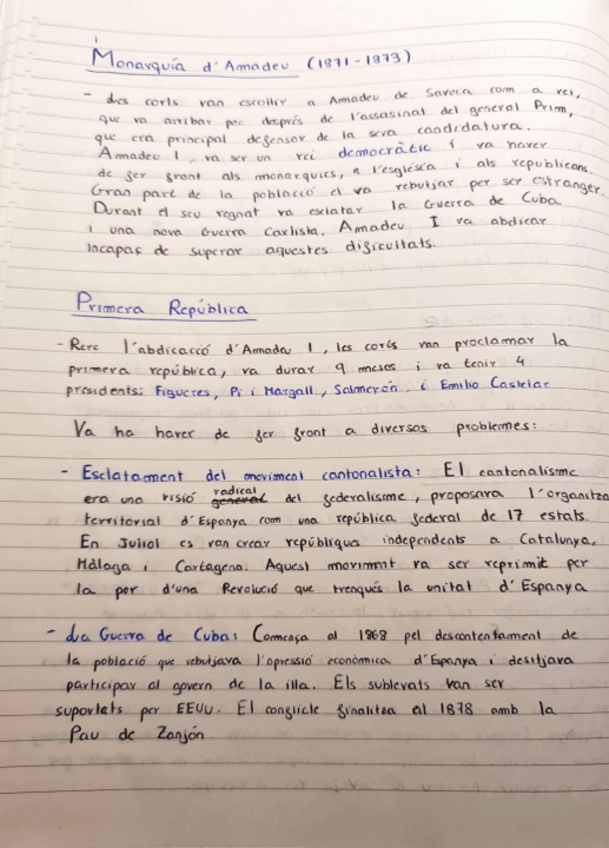 Monarquía d'Amadeu (1871-1873)
- Les corts van escollir a Amadeu de Savoia com a rei,
que va arribar poc després de l'assasinat del general Prim,
que era principal defensor de la seva candidatura.
Amadeu I, va ser un rei democràtic i va haver
de fer front als monarquics, a l'església i als republicans.
Gran part de la població el va rebutjar per ser estranger.
Durant el seu regnat va esclatar la Guerra de Cuba
i una nova Guerra Carlista. Amadeu I va abdicar
incapaç de superar aquestes dificultats.
Primera República
- Rere l'abdicacció d'Amadeu I, les corts van proclamar la
primera república, va durar 9 mesos i va tenir 4
presidents: Figueres, Pi i Margall, Salmerón i Emilio Castelar
Va ha haver de fer front a diversos problemes:
- Esclatament del moviment cantonalista: El cantonalisme
era una visió general radical del federalisme, proposava l'organitza
territorial d'Espanya com una república federal de 17 estats.
En Juliol es van crear repúbliques independents a Catalunya,
Màlaga i Cartagena. Aquest moviment va ser reprimit per
la por d'una Revolució que trenqués la unitat d'Espanya
- La Guerra de Cuba: Comença al 1868 pel descontentament de
la població que rebutjava l'opressió econòmica d'Espanya i desitjava
participar al govern de la illa. Els sublevats van ser
suportats per EEUU. El conflicte finalitza al 1878 amb la
Pau de Zanjón